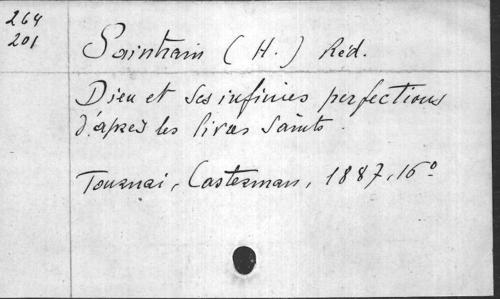 264
201
Saintrain (H.) Réd.
Dieu et ses infinies perfections
d'après les livres saints.
Tournai, Casterman, 1887, 16°